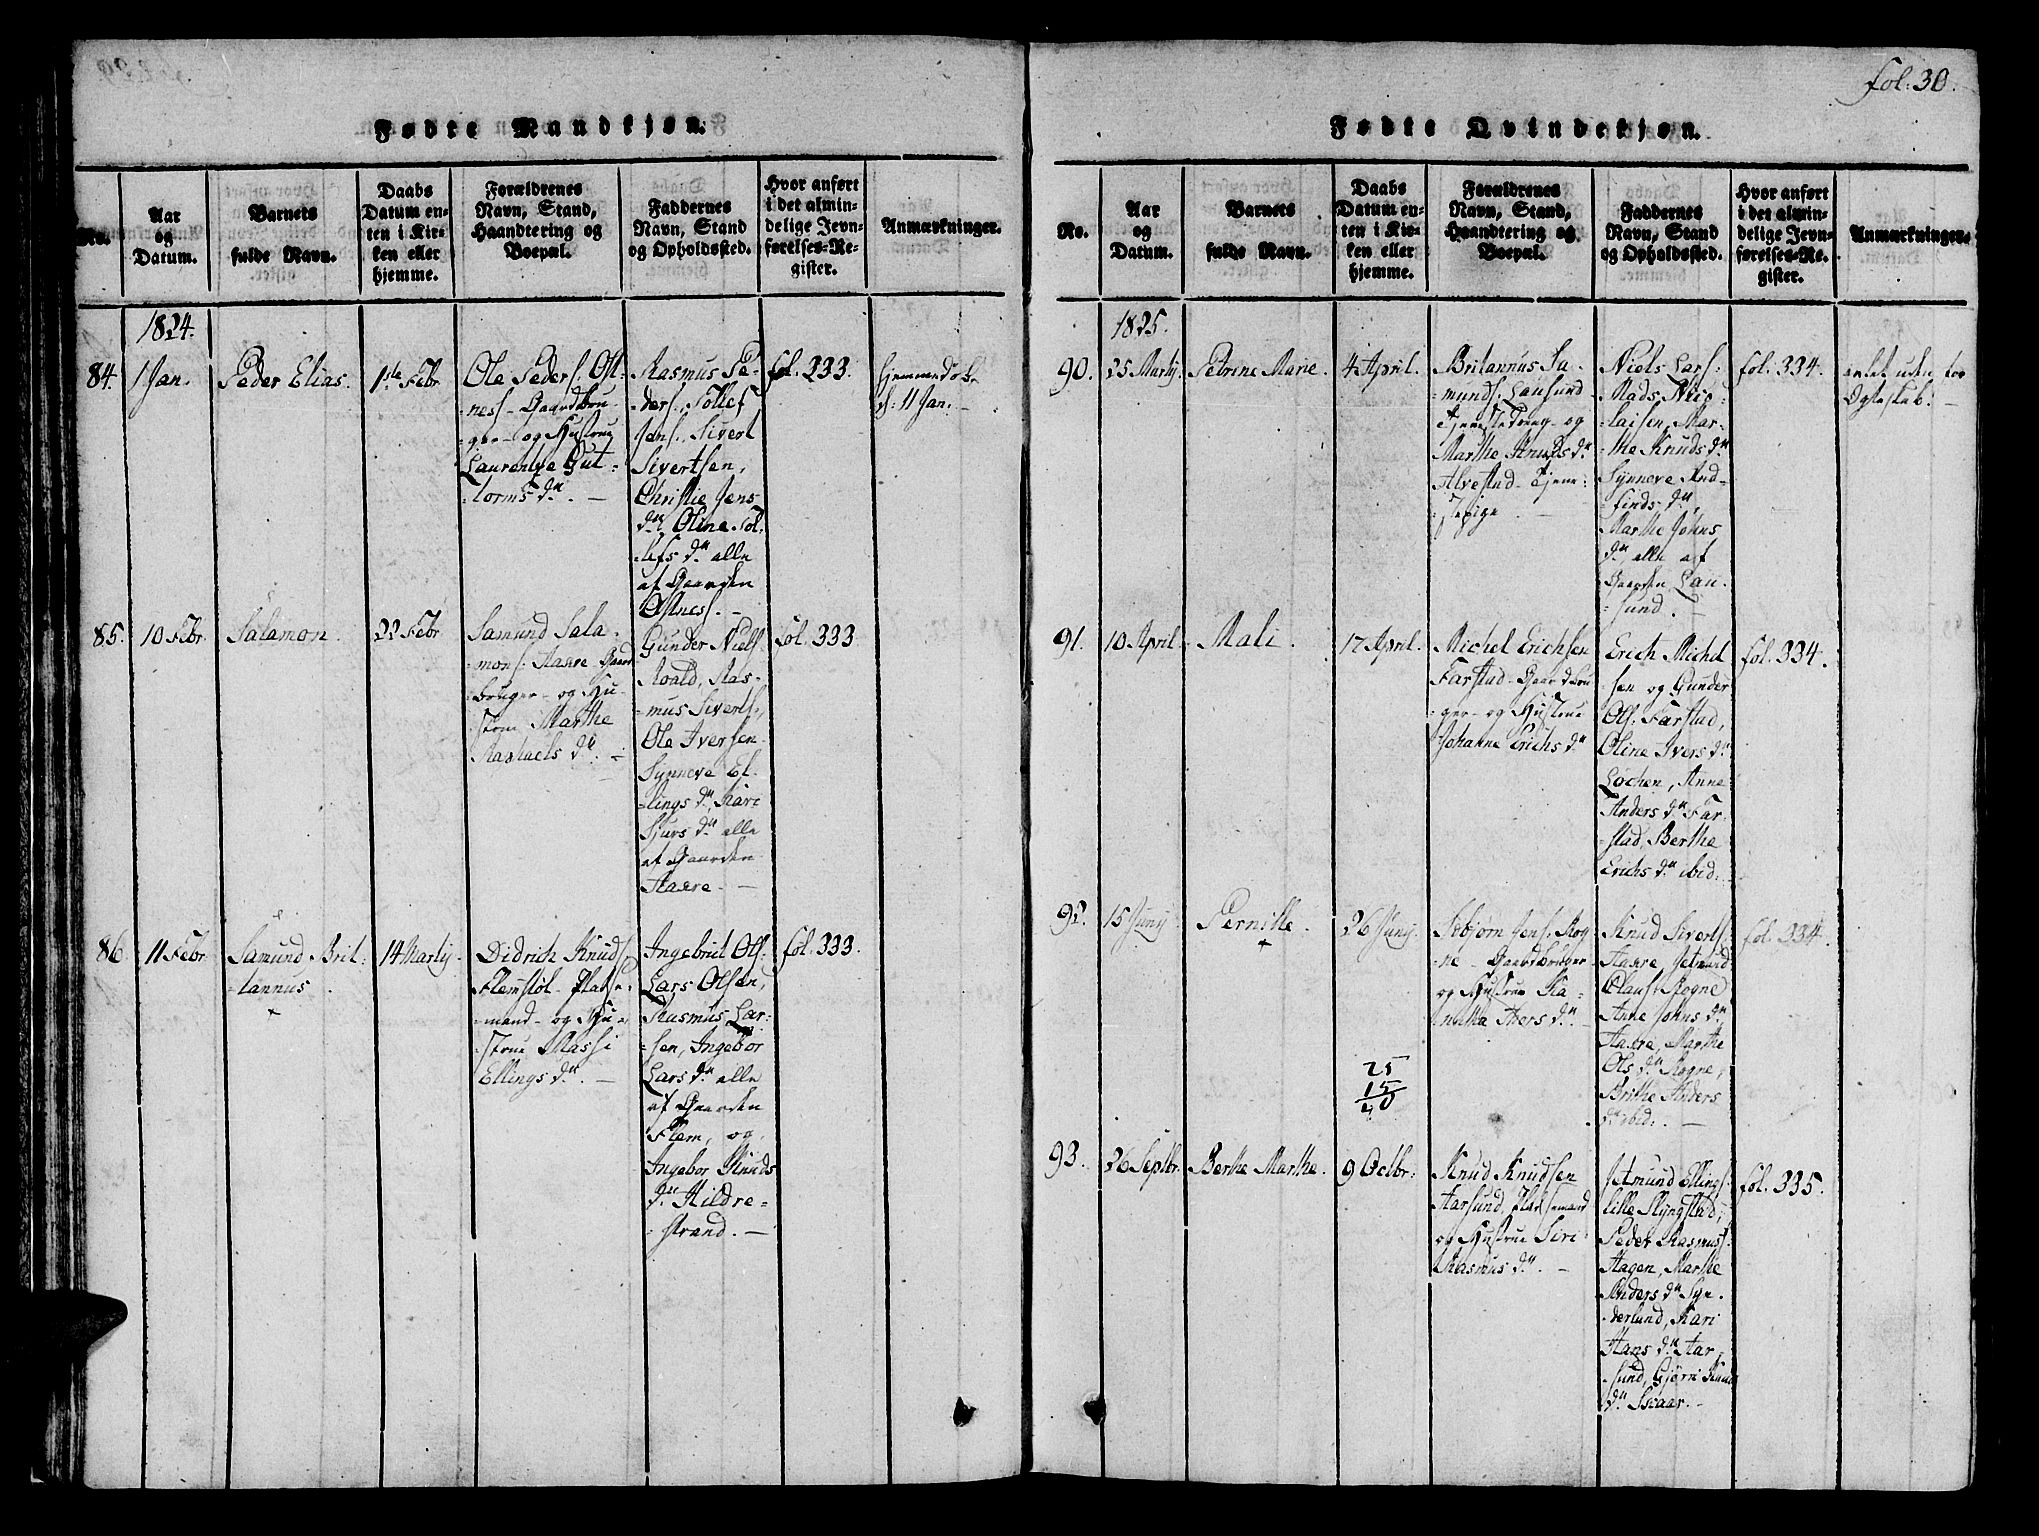 fol: 30.
Fødte Mandkjøn.
No.
Aar
og
Datum.
Barnets
fulde Navn.
Daabs
Datum en-
ten i Kir-
ken eller
hjemme.
Forældrenes
Navn, Stand,
Haandtering og
Boepæl.
Faddernes
Navn, Stand
og Opholdssted.
Hvor anført
i det almin-
delige Jevn-
førelses-Re-
gister.
Anmærkninger.
1824.
84.
1 Jan.
Peder Elias.
1ste Febr
Ole Peders. Ost-
nes - Gaardbru-
ger - og Hustrue
Laurentze Gut-
torms dr. -
Rasmus Pe-
ders., Tollef
Jons., Sivert
Sivertsen,
Christie Jens
dr, Oline Tol-
lefs dr alle
af Gaarden
Ostnes. -
fol. 333.
hjemmedøbt
d: 11 Jan. -
85.
10 Febr.
Salamon.
22 Febr
Samund Sala-
mons. Aakre Gaard
bruger - og Hu-
strue Marthe
Rashaels dr. -
Gunder Niels
Roald, Ras-
mus Siverts.,
Ole Iversen
Synneve El-
lings dr, Kari
Sjurs dr alle
af Gaarden
Aakre. -
fol. 333.
86.
11 Febr
Samund Brit-
tannus.
14 Martij.
Didrich Knuds.
Flemstøl - Pladse-
mand - og Hu-
strue Massi
Ellings dr. -
Ingebrit Ols.
Lars Olsen,
Rasmus Lar-
sen, Ingebor
Lars dr alle
af Gaarden
Flem, og
Ingebor Knuds
dr Hildre-
strand. -
fol. 333.
Fødte Qvindekjøn.
No.
Aar
og
Datum.
Barnets
fulde Navn.
Daabs
Datum en-
ten i Kir-
ken eller
hjemme.
Forældrenes
Navn, Stand,
Haandtering og
Boepæl.
Faddernes
Navn, Stand
og Opholdssted.
Hvor anført
i det almin-
delige Jevn-
førelses-Re-
gister.
Anmærkninger.
1825.
90.
25 Martij.
Petrine Marie.
4 April.
Britannus Sa-
munds. Lausund
Tjenestedreng og
Marthe Knuds dr
Alvestad - Tjene-
stepige -
Niels Lars.
Mads Nic-
laisen, Mar-
the Knuds dr
Synneve And-
finds dr,
Marthe Johns
dr, alle af
Gaarden Lau-
sund. -
fol. 334.
avlet uden for
Ægteskab. -
91.
10 April.
Mali
17 April.
Michel Erichsen
Farstad - Gaardbru-
ger - og Hustrue
Johanne Erichs dr
Erich Michel
sen og Gunder
Ols. Farstad,
Oline Ivers dr
Løchen, Anne
Anders dr Far-
stad, Berthe
Erichs dr ibid. -
fol. 334.
92.
15 Juny
Pernille.
26 Juny.
Esbjørn Jens. Rog
ne - Gaardbruger
og Hustrue Ka-
nutha Ivers dr -
Knud Siverts.
Aakre Jetmund
Claus. Rogne
Anne Johns dr,
Aakre, Marthe
Ols dr Rogne,
Brithe Anders
dr ibid. -
fol. 334.
25
15
40
93.
26 Septbr.
Berthe Marthe.
9 Octbr.
Knud Knudsen
Aarsund, Pladsemand
og Hustrue Siri
Rasmus dr. -
Jetmund Ellings.
lille Slyngstad,
Peder Rasmus.
Hagen, Marthe
Anders dr Syn-
derlund, Kari
Hans dr Aar-
sund, Gjøri Knuds
dr Svaar. -
fol. 335.